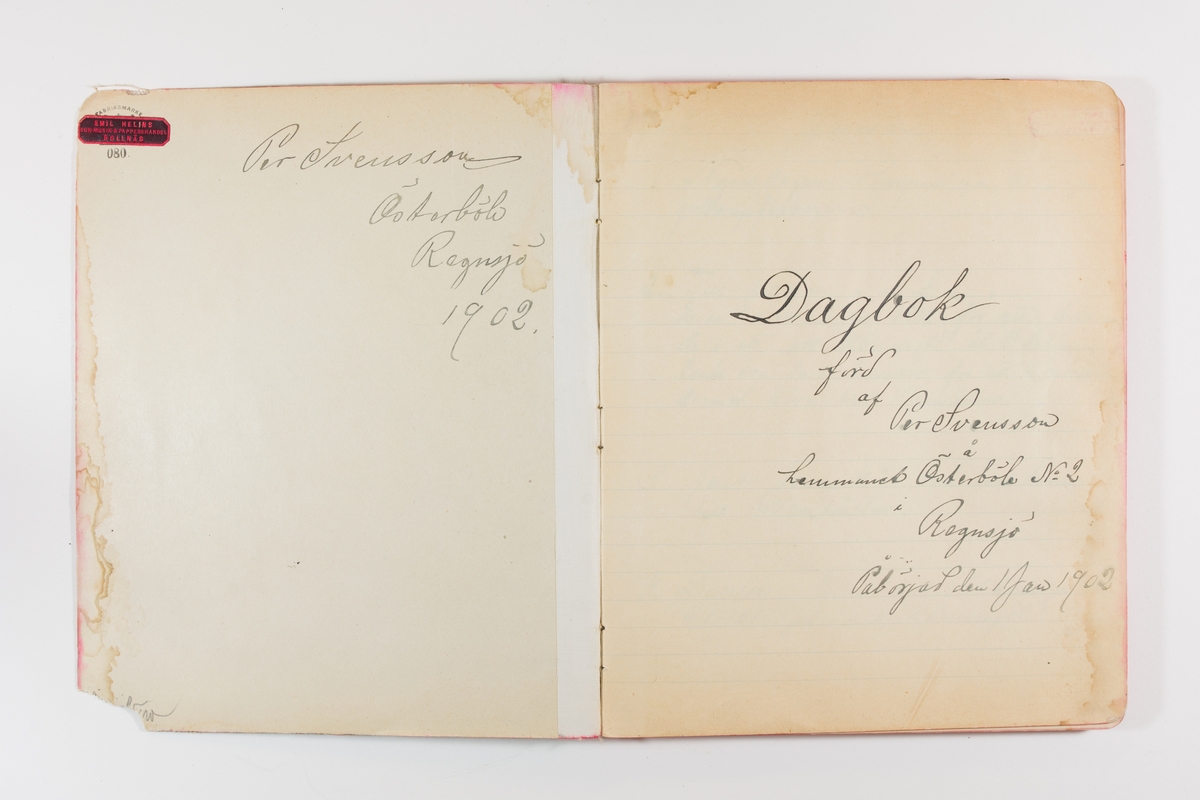 FABRIKSMÄRKE
EMIL HELINS
BOK-MUSIK & PAPPERSHANDEL
BOLLNÄS
080.
Per Svensson
Österböle
Regnsjö
1902.
Dagbok
förd
af
Per Svensson
å
hemmanet Österböle No 2
i
Regnsjö
Påbörjad den 1 Jan 1902